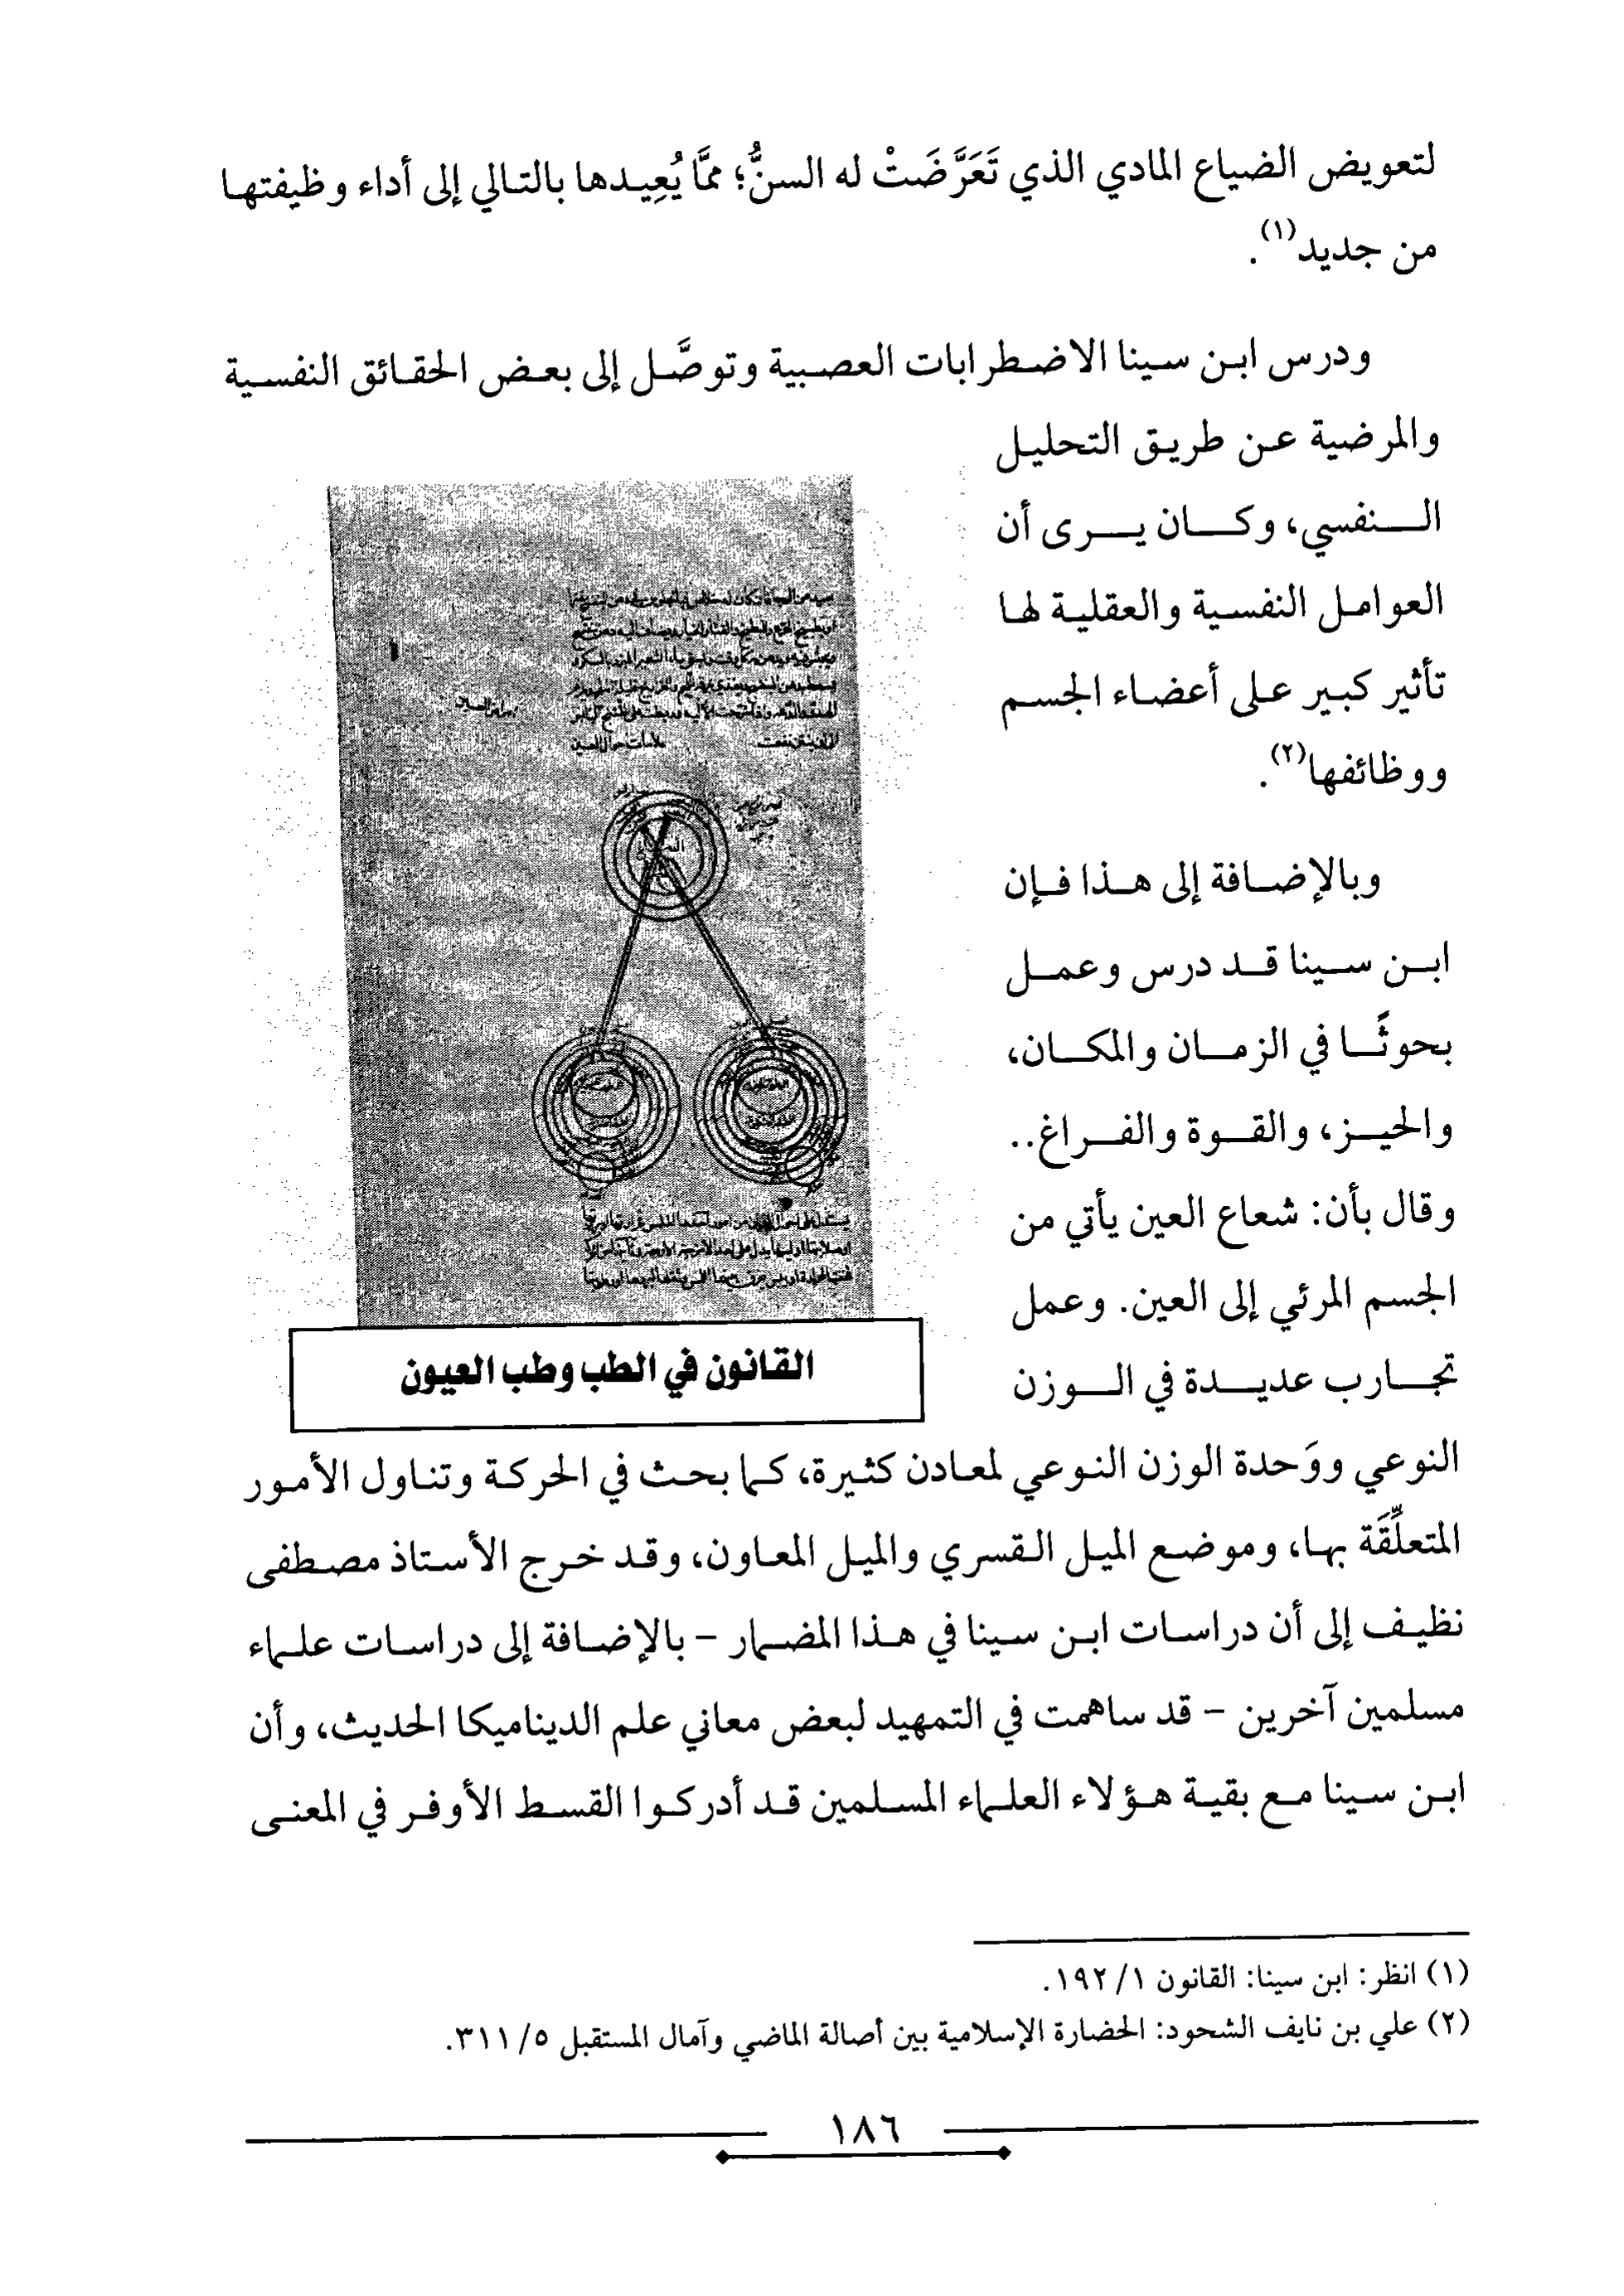 لتعويض الضياع المادي الذي تَعَرَّضَتْ له السنُّ؛ ممَّا يُعِيدها بالتالي إلى أداء وظيفتها
من جديد(١).
ودرس ابن سينا الاضطرابات العصبية وتوصَّل إلى بعض الحقائق النفسية
والمرضية عن طريق التحليل
النفسي، وكان يرى أن
العوامل النفسية والعقلية لها
تأثير كبير على أعضاء الجسم
ووظائفها(٢).
وبالإضافة إلى هذا فإن
ابن سينا قد درس وعمل
بحوثًا في الزمان والمكان،
والحيز، والقوة والفراغ..
وقال بأن: شعاع العين يأتي من
الجسم المرئي إلى العين. وعمل
تجارب عديدة في الوزن
القانون في الطب وطب العيون
النوعي ووَحدة الوزن النوعي لمعادن كثيرة، كما بحث في الحركة وتناول الأمور
المتعلِّقَة بها، وموضع الميل القسري والميل المعاون، وقد خرج الأستاذ مصطفى
نظيف إلى أن دراسات ابن سينا في هذا المضمار - بالإضافة إلى دراسات علماء
مسلمين آخرين - قد ساهمت في التمهيد لبعض معاني علم الديناميكا الحديث، وأن
ابن سينا مع بقية هؤلاء العلماء المسلمين قد أدركوا القسط الأوفر في المعنى
(١) انظر: ابن سينا: القانون ١/ ١٩٢.
(٢) علي بن نايف الشحود: الحضارة الإسلامية بين أصالة الماضي وآمال المستقبل ٥/ ٣١١.
١٨٦